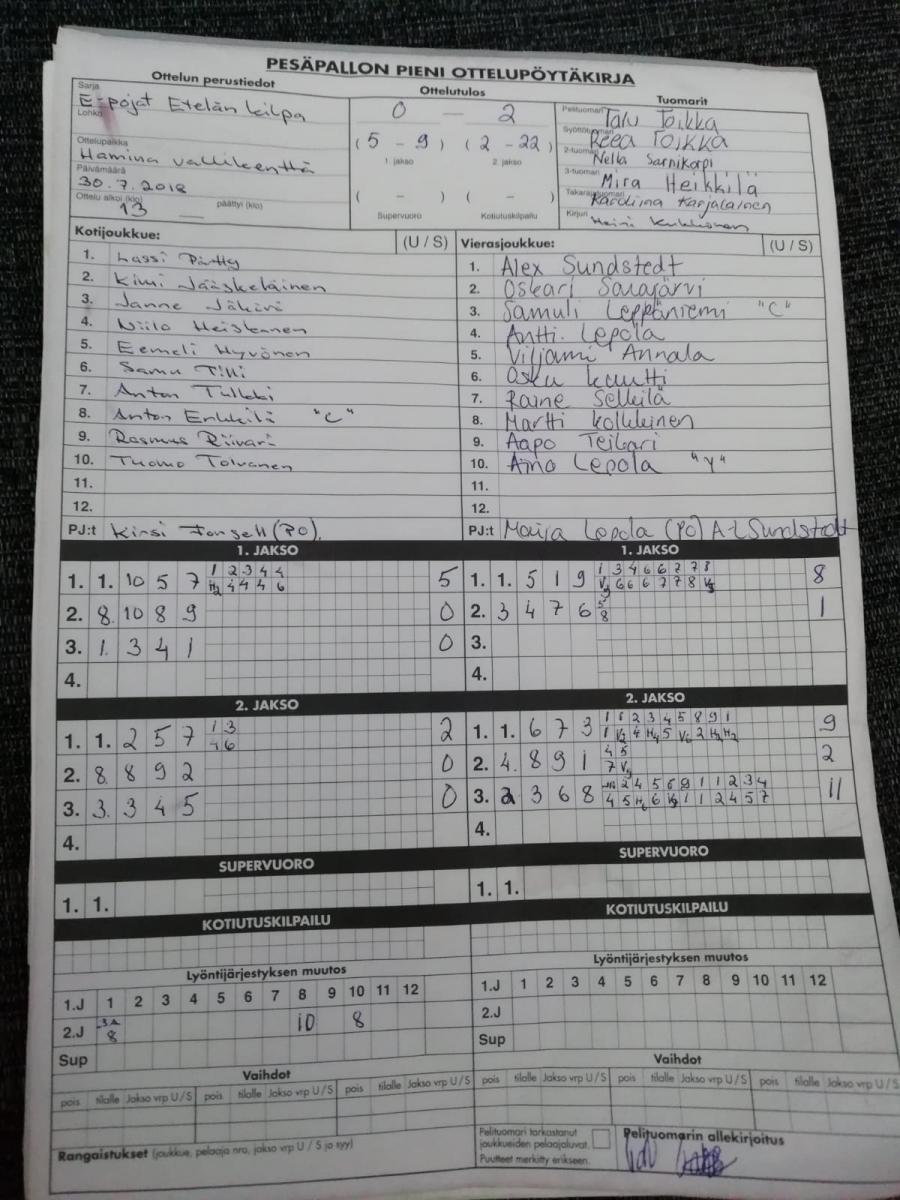 PESÄPALLON PIENI OTTELUPÖYTÄKIRJA
Ottelun perustiedot Ottelutulos Tuomarit
Sarja E-pojat Etelän leilpa
Lohko
0 — 2
Pelituomari Talu Toikka
Syöttötuomari Reea Toikka
(5 - 9) (2 - 22)
1. jakso 2. jakso
2-tuomari Nella Sarnikorpi
Ottelupaikka Hamina vallikenttä
3-tuomari Mira Heikkilä
Päivämäärä 30.7.2018
( - ) ( - )
Takarajatuomari Karoliina Karjalainen
Ottelu alkoi (klo) 13 päättyi (klo)
Supervuoro Kotiutuskilpailu
Kirjuri Heini
Kotijoukkue: (U / S)
1. Lassi
2. Kimi Jääskeläinen
3. Janne
4. Niilo Heiskanen
5. Eemeli Hyvönen
6. Samu Tilli
7. Anton Tulkki
8. Anton Erkkilä "C"
9. Rasmus Riivari
10. Tuomo Toivanen
11.
12.
PJ:t Kirsi Forsell (PO).
Vierasjoukkue: (U / S)
1. Alex Sundstedt
2. Oskari Savajärvi
3. Samuli Leppäniemi "C"
4. Antti Lepola
5. Viljami Annala
6. Osku Kautti
7. Raine Selkilä
8. Martti Kolkkinen
9. Aapo Teikari
10. Aino Lepola "Y"
11.
12.
PJ:t Maija Lepola (PO) A-L Sundstedt
1. JAKSO
1. 1. 10 5 7 5
1 2 3 4 4
H2 4 4 4 6
2. 8. 10 8 9 0
3. 1. 3 4 1 0
4.
1. JAKSO
1. 1. 5 1 9 8
1 3 4 6 6 7 7 8
V9 6 6 6 7 7 8 V9
2. 3 4 7 6 1
5
8
3.
4.
2. JAKSO
1. 1. 2 5 7 2
1 3
4 6
2. 8. 8 9 2 0
3. 3. 3 4 5 0
4.
2. JAKSO
1. 1. 6 7 3 9
1 1 2 3 4 5 8 9 1
1 V2 4 H4 5 V6 2 H2 H2
2. 4. 8 9 1 2
4 5
7 V9
3. 2 3 6 8 11
2 4 5 6 9 1 1 2 3 4
4 5 H6 6 V9 1 1 2 4 5 7
4.
SUPERVUORO
1. 1.
SUPERVUORO
1. 1.
KOTIUTUSKILPAILU
KOTIUTUSKILPAILU
Lyöntijärjestyksen muutos
1.J 1 2 3 4 5 6 7 8 9 10 11 12
2.J 8 10 8
Sup
Lyöntijärjestyksen muutos
1.J 1 2 3 4 5 6 7 8 9 10 11 12
2.J
Sup
Vaihdot
pois tilalle Jakso vrp U / S pois tilalle Jakso vrp U / S pois tilalle Jakso vrp U / S
Vaihdot
pois tilalle Jakso vrp U / S pois tilalle Jakso vrp U / S pois tilalle Jakso vrp U / S
Rangaistukset (joukkue, pelaaja nro, jakso vrp U / S ja syy)
Pelituomari tarkastanut
joukkueiden pelaajaluvat.
Puutteet merkitty erikseen.
Pelituomarin allekirjoitus